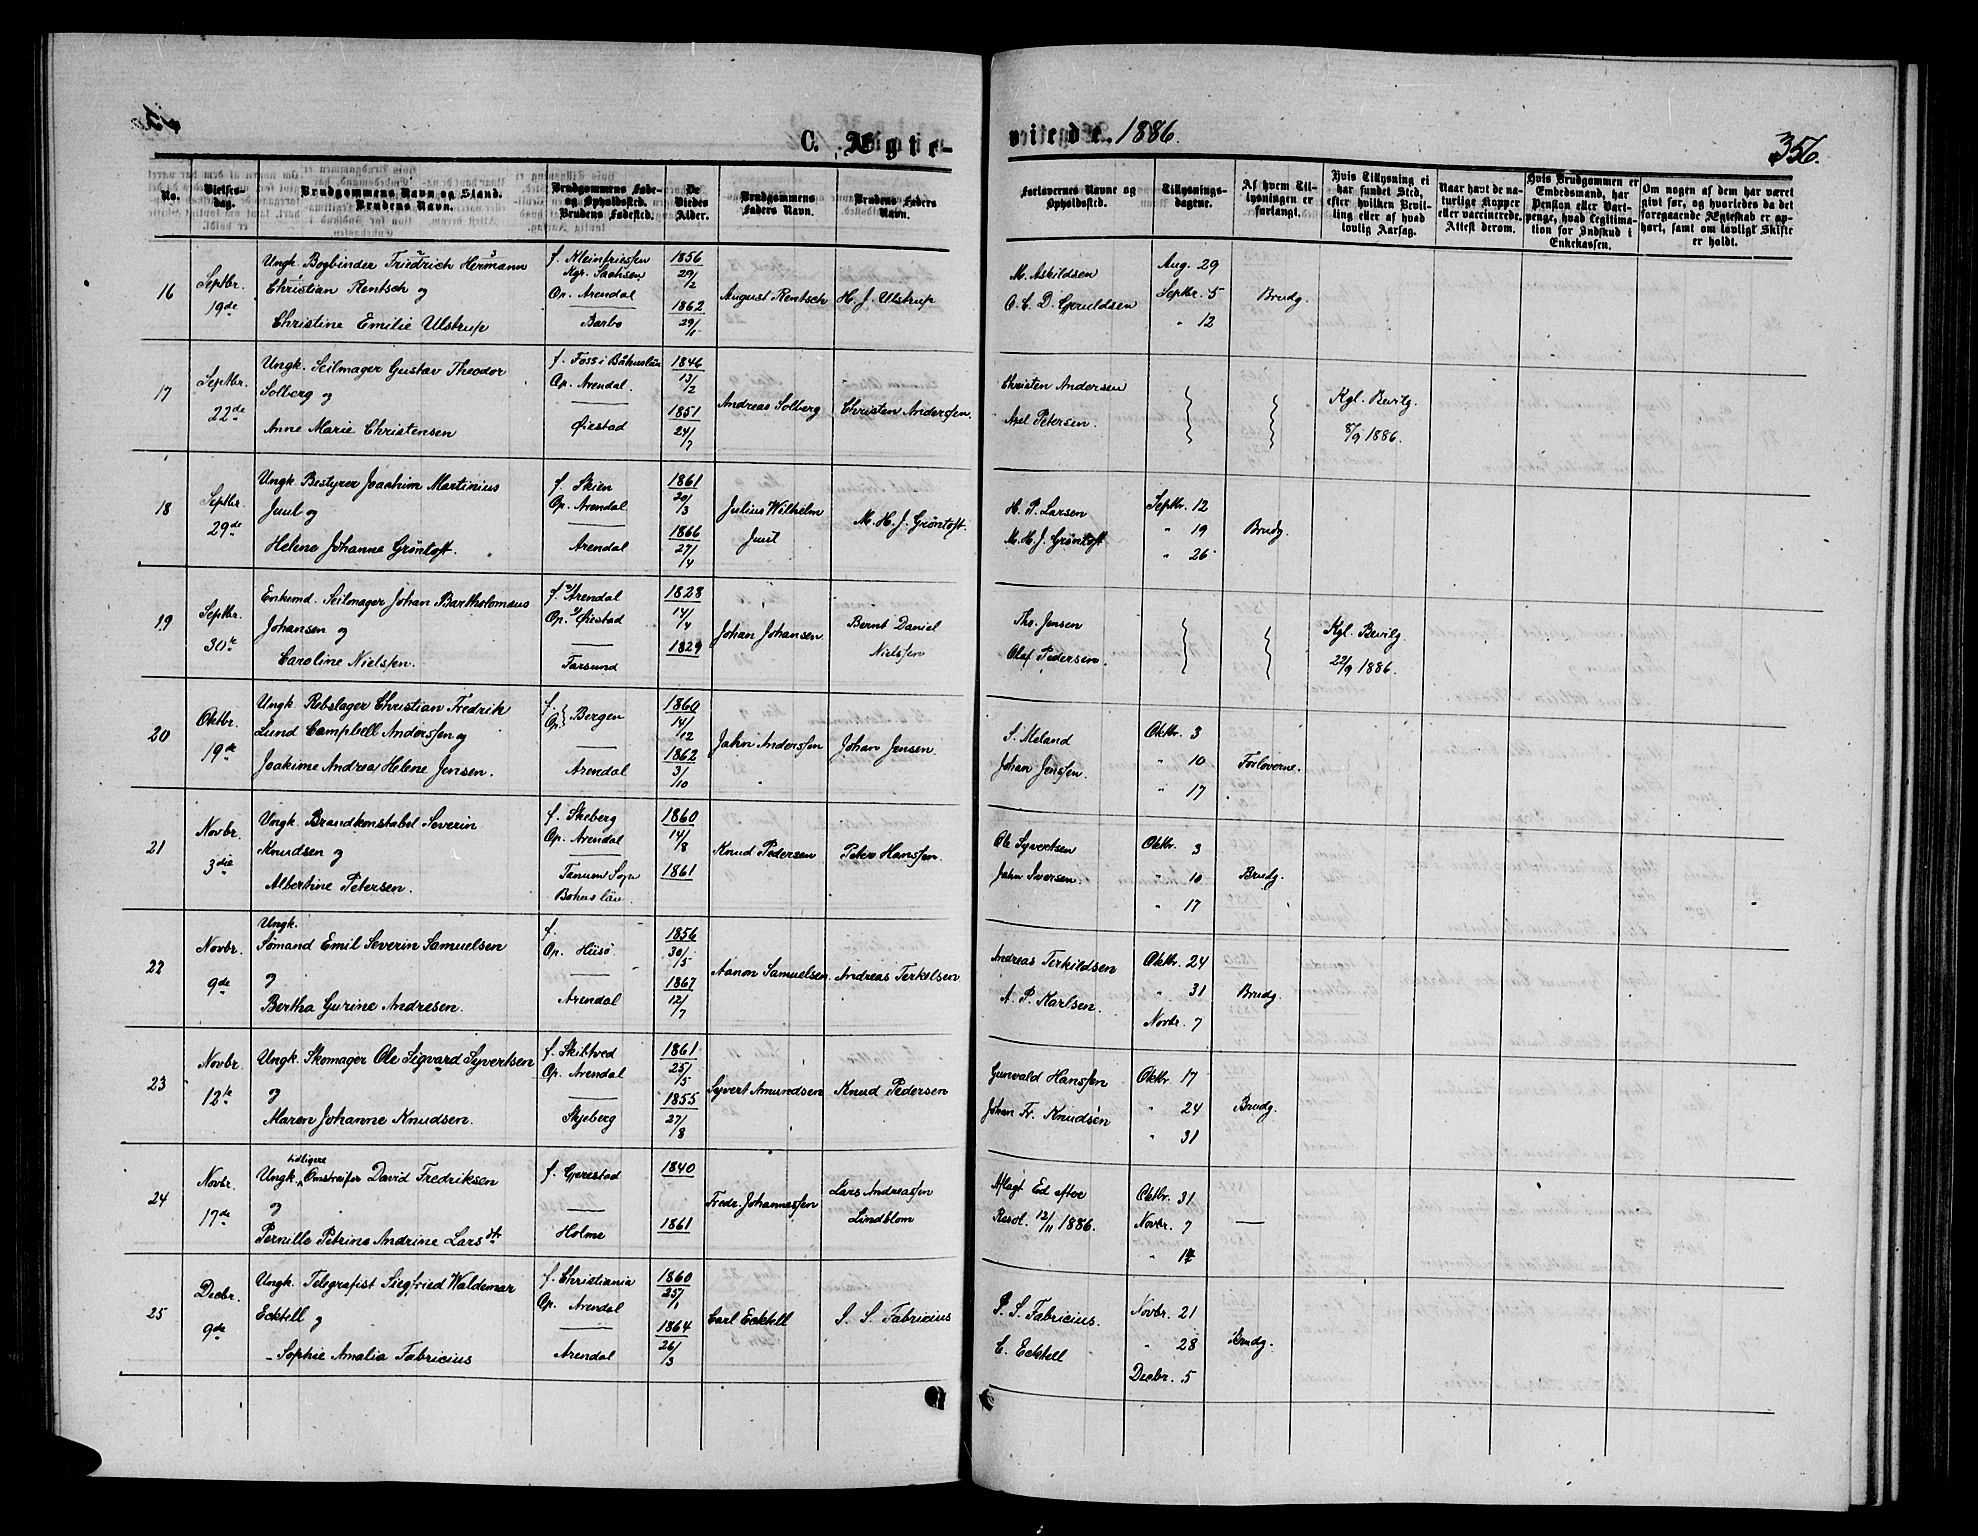 C. Ægte-
viede. 1886.
356.
No.
Vielses-
dag.
Brudgommens Navn og Stand.
Brudens Navn.
Brudgommens Føde-
og Opholdssted.
Brudens Fødested.
De
Viedes
Alder.
Brudgommens
Faders Navn.
Brudens Faders
Navn.
Forlovernes Navne og
Opholdssted.
Tillysnings-
dagene.
Af hvem Til-
lysningen er
forlangt.
Hvis Tillysning ei
har fundet Sted,
efter hvilken Bevil-
ling eller af hvad
lovlig Aarsag.
Naar havt de na-
turlige Kopper
eller vaccinerede.
Attest derom.
Hvis Brudgommen er
Embedsmand, har
Pension eller Vart-
penge, hvad Legitima-
tion for Indskud i
Enkekassen.
Om nogen af dem har været
givt før, og hvorledes da det
foregaaende Ægteskab er op-
hørt, samt om lovligt Skifte
er holdt.
16
Septbr.
19de
Ungk. Bogbinder Friedrich Hermann
Christian Rentsch og
Christine Emilie Ulstrup
f. Kleinfriessen
Kgr. Sachsen
Op. Arendal
Barbo
1856
29/2
1862
29/1
August Rentsch
H. J. Ulstrup
M. Askildsen
O. C. D. Gjeruldsen
Aug. 29
Septbr. 5
" 12
Brudg.
17
Septbr.
22de
Ungk. Seilmager Gustav Theodor
Solberg og
Anne Marie Christensen
f. Foss i Båhuslän
Op. Arendal.
Øiestad
1846
13/2
1851
24/7
Andreas Solberg
Christen Anderssen.
Christen Andersen
Axel Petersen.
Kgl. Bevilg.
8/9 1886.
18
Septbr.
29de
Ungk Bestyrer Joachim Martinius
Juul og
Helene Johanne Grøntoft.
f. Skien
Op. Arendal
Arendal
1861
20/3
1866
27/4
Julius Wilhelm
Juul
M. H. J. Grøntoft.
H. P. Larsen
M. H. J. Grøntoft
Septbr. 12
" 19
" 26
Brudg.
19
Septbr.
30te
Enkemd. Seilmager Johan Bartholomæus
Johansen og
Caroline Nielssen.
f. Arendal
Op. Øiestad
Farsund
1828
14/4
1829
Johan Johansen
Bernt Daniel
Nielssen
Ths. Jensen
Olaf Pedersen.
Kgl. Bevilg
22/9 1886.
20
Oktbr.
19de
Ungk. Rebslager Christian Fredrik
Lund Campbell Anderssen og
Joakime Andrea Helene Jensen.
f.
Op. } Bergen
Arendal
1860
14/12
1862
3/10
Jahn Anderssen
Johan Jensen.
S. Meland
Johan Jenssen.
Oktbr. 3
" 10
" 17
Forloverne.
21
Novbr.
3die
Ungk. Brandkonstabel Severin
Knudsen og
Albertine Petersen.
f. Skeberg
Op. Arendal
Tanum Sogn
Bohuslän.
1860
14/8
1861
Knud Pedersen
Peter Hanssen.
Ole Syvertsen
Jahn Iversen.
Oktbr. 3
" 10
" 17
Brudg.
22
Novbr.
9de
Ungk.
Sømand Emil Severin Samuelsen
og
Bertha Gurine Andresen.
f.
Op. Hisø.
Arendal
1856
30/5
1867
12/7
Aanon Samuelsen.
Andreas Terkelsen
Andreas Terkildsen
A. P. Karlsen.
Oktbr. 24
" 31
Novbr. 7
Brudg.
23
Novbr.
12te
Ungk. Skomager Ole Sigvard Syvertsen
og
Maren Johanne Knudsen.
f. Skibtved
Op. Arendal
Skjeberg
1861
25/5
1855
27/8
Syvert Amundsen
Knud Pedersen
Gunvald Hanssen
Johan Fr. Knudsen
Oktbr 17
" 24
" 31
Brudg.
24
Novbr.
17de
tidligere
Ungk. Omstreifer David Fredriksen
og
Pernille Petrine Andrine Larsdtr
f. Gjerestad
Holme
1840
1861
Fredr. Johannessen
Lars Andreassen
Lindblom
Aflagt Ed efter
Resol. 12/11 1886.
Oktbr. 31
Novbr. 7
" 14
25
Decbr.
9de
Ungk. Telegrafist Siegfried Waldemar
Ecktell og
Sophie Amalia Fabricius
f. Christiania
Op. Arendal
Arendal
1860
25/1
1864
26/3
Carl Ecktell
S. S. Fabricius
P. S. Fabricius.
C. Ecktell
Novbr. 21
" 28
Decbr. 5
Brudg.